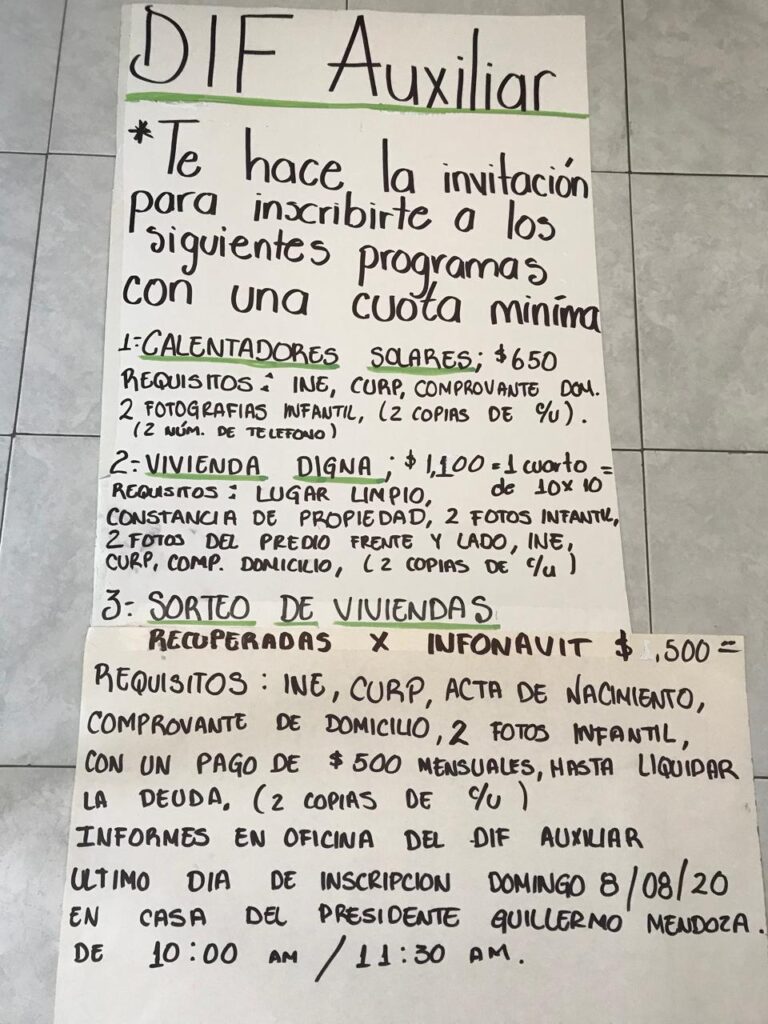 DIF Auxiliar
*Te hace la invitación
para inscribirte a los
siguientes programas
con una cuota minima
1-CALENTADORES SOLARES; $650
REQUISITOS: INE, CURP, COMPROVANTE DOM.
2 FOTOGRAFIAS INFANTIL, (2 COPIAS DE c/u).
(2 NÚM. DE TELEFONO)
2-VIVIENDA DIGNA; $1,100 = 1 cuarto =
de 10x10
REQUISITOS: LUGAR LIMPIO,
CONSTANCIA DE PROPIEDAD, 2 FOTOS INFANTIL,
2 FOTOS DEL PREDIO FRENTE Y LADO, INE,
CURP, COMP. DOMICILIO, (2 COPIAS DE c/u)
3- SORTEO DE VIVIENDAS
RECUPERADAS X INFONAVIT $1,500=
REQUISITOS: INE, CURP, ACTA DE NACIMIENTO,
COMPROVANTE DE DOMICILIO, 2 FOTOS INFANTIL,
CON UN PAGO DE $500 MENSUALES, HASTA LIQUIDAR
LA DEUDA. (2 COPIAS DE c/u)
INFORMES EN OFICINA DEL DIF AUXILIAR
ULTIMO DIA DE INSCRIPCION DOMINGO 8/08/20
EN CASA DEL PRESIDENTE GUILLERMO MENDOZA.
DE 10:00 AM / 11:30 AM.